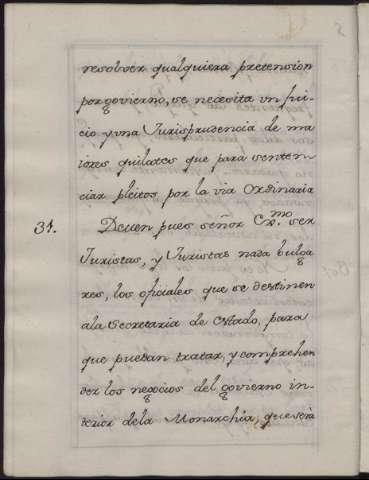 resolver qualquiera pretension
por govierno, se necesita un jui-
cio y una Jurisprudencia de ma
iores quilates que para senten-
ciar pleitos por la via ordinaria
31. Deven pues señor Ex.mo ser
Juristas, y Juristas nada bulga
res, los oficiales que se destinen
ala Secretaria de Estado, para
que puedan tratar, y comprehen
der los negocios del govierno in-
terior dela Monarchia, que seria